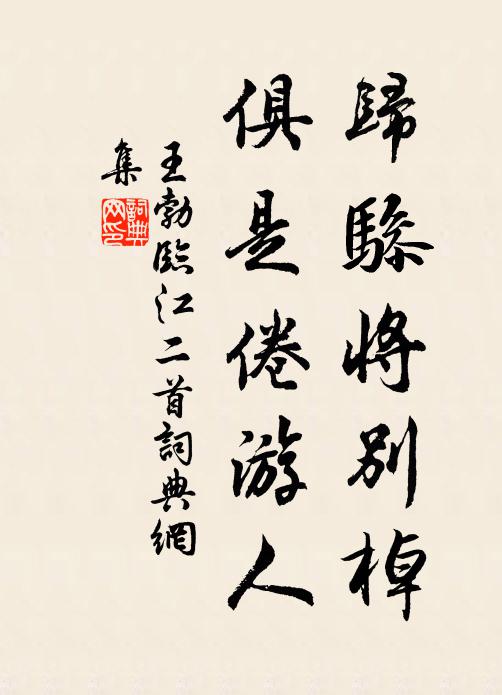 歸驂將別棹
俱是倦游人
王勃臨江二首詞典網
集
詞典網印